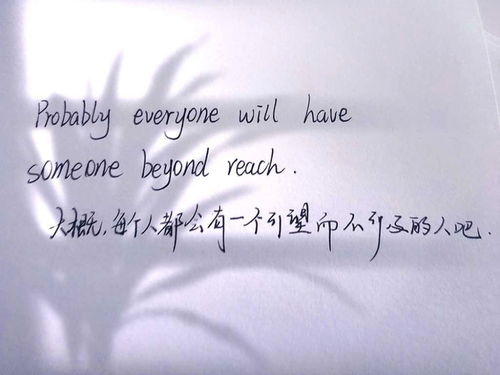 Probably everyone will have
someone beyond reach.
大概,每个人都会有一个可望而不可及的人吧.